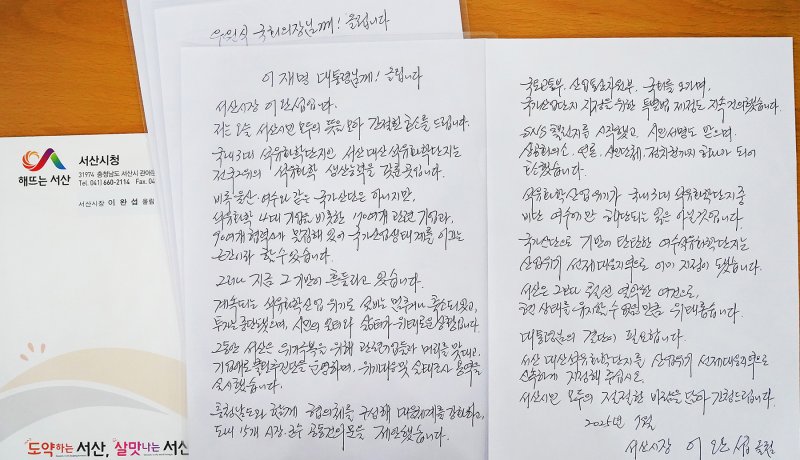 우원식 국회의장님께! 올립니다
이재명 대통령님께! 올립니다
서산시장 이완섭입니다.
저는 오늘 서산시민 모두의 뜻을 모아 간절한 호소를 드립니다.
국내 3대 석유화학단지인 서산 대산석유화학단지는
전국 2위의 석유화학 생산능력을 갖춘 곳입니다.
비록 울산·여수와 같은 국가산단은 아니지만,
석유화학 4대 기업을 비롯한 70여개 관련 기업과,
90여개 협력사가 밀집해 있어 국가산업생태계를 이끄는
근간이라 할 수 있습니다.
그러나 지금 그 기반이 흔들리고 있습니다.
계속되는 석유화학산업 위기로 설비는 멈추거나 축소되었고,
투자는 중단됐으며, 시민의 일터와 삶터가 위태로운 상황입니다.
그동안 서산은 위기극복을 위해 관련기업들과 머리를 맞대고,
기업애로 을 운영하며, 위기대응 및 실태조사 용역을
실시했습니다.
충청남도와 함께 협의체를 구성해 대응체계를 강화하고,
도내 15개 시장·군수 공동건의문을 제안했습니다.
국토교통부, 산업통상자원부, 국회를 오가며,
국가산업단지 지정을 위한 특별법 제정도 지속 건의했습니다.
SNS 챌린지를 시작했고, 시민서명도 받으며,
상공회의소, 언론, 시민단체, 정치권까지 하나가 되어
호소했습니다.
석유화학산업 위기가 국내 3대 석유화학단지 중
비단 여수에만 해당되는 일은 아닐 것입니다.
국가산단으로 기반이 탄탄한 여수석유화학단지는
산업위기 선제대응지역으로 이미 지정이 됐습니다.
서산은 그보다 훨씬 열악한 여건으로,
현 상태를 유지할 수 없을 만큼 위태롭습니다.
대통령님의 결단이 필요합니다.
서산 대산석유화학단지를 산업위기 선제대응지역으로
신속하게 지정해 주십시오.
서산시민 모두의 절절한 바람을 담아 간청드립니다.
2025년 7월
서산시장 이완섭 올림
해뜨는 서산
서산시청
31974 충청남도 서산시 관아문
Tel. 041) 660-2114 Fax. 04
서산시장 이 완 섭 올림
도약하는 서산, 살맛나는 서산